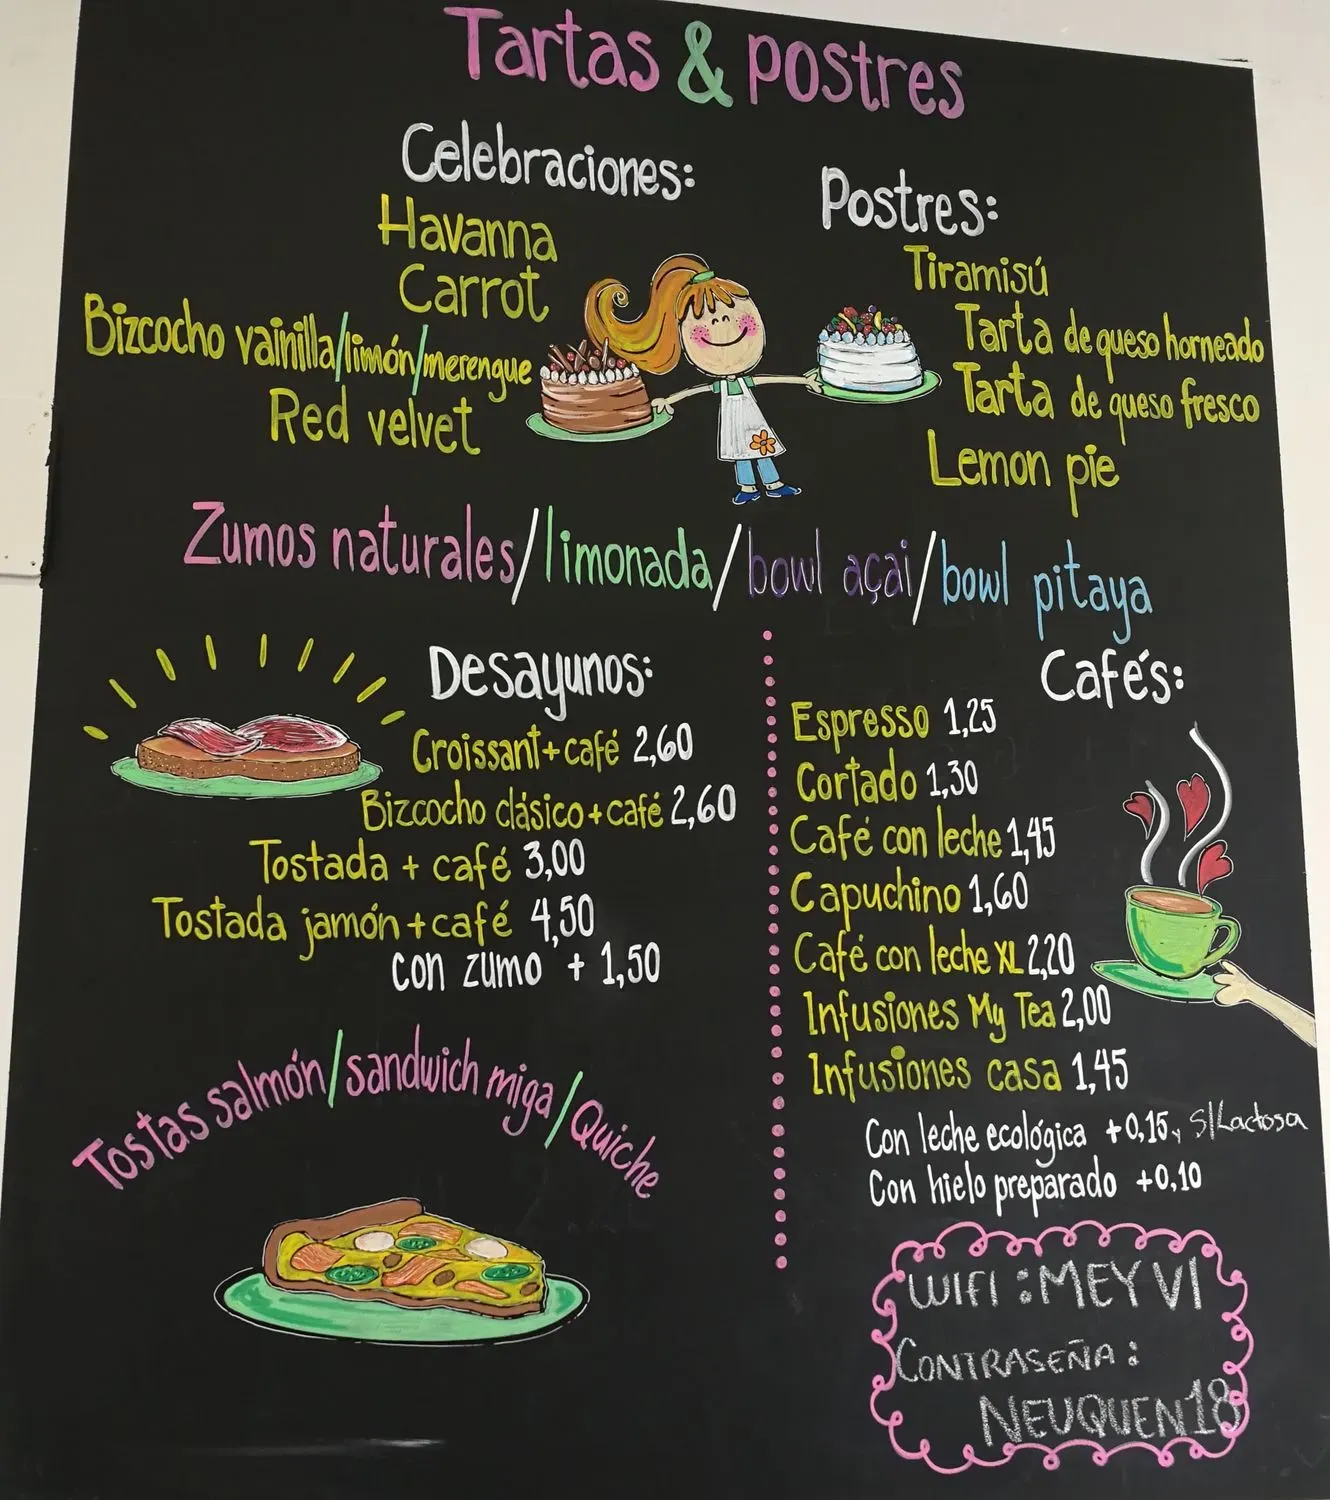 Tartas & postres
Celebraciones:
Havanna
Carrot
Bizcocho vainilla/limón/merengue
Red velvet
Postres:
Tiramisú
Tarta de queso horneado
Tarta de queso fresco
Lemon pie
Zumos naturales/limonada/bowl açai/bowl pitaya
Desayunos:
Croissant+café 2,60
Bizcocho clásico+café 2,60
Tostada + café 3,00
Tostada jamón+café 4,50
con zumo + 1,50
Tostas salmón/sandwich miga/Quiche
Cafés:
Espresso 1,25
Cortado 1,30
Café con leche 1,45
Capuchino 1,60
Café con leche XL 2,20
Infusiones My Tea 2,00
Infusiones casa 1,45
Con leche ecológica +0,15 y S/Lactosa
Con hielo preparado +0,10
WIFI : MEYVI
CONTRASEÑA :
NEUQUEN18